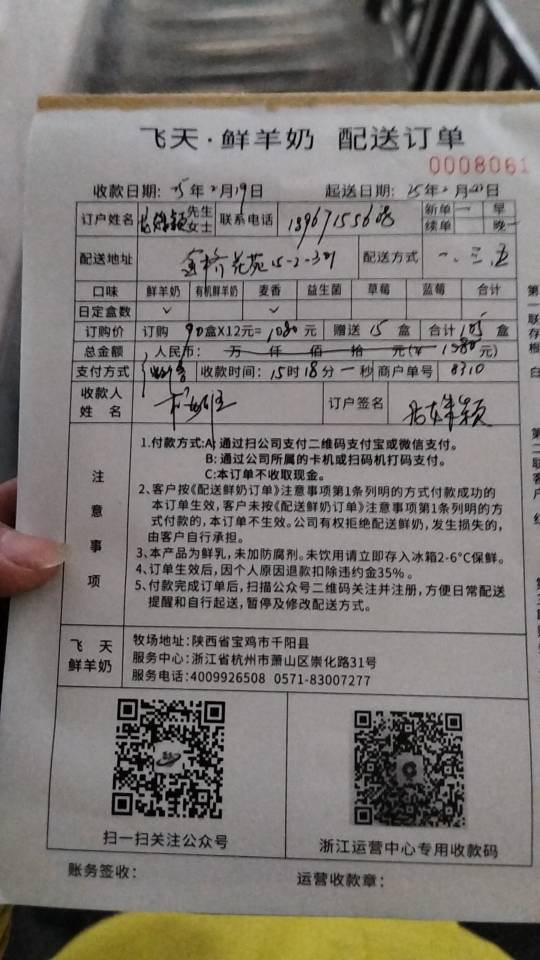 飞天·鲜羊奶 配送订单
0008061
收款日期：25年2月19日 起送日期：25年2月 日
订户姓名 先生 女士 联系电话 新单 一 早
续单 晚
配送地址 金桥花苑15-2-301 配送方式 一、三、五
口味 鲜羊奶 有机鲜羊奶 麦香 益生菌 草莓 蓝莓 合计
日定盒数 ✓ ✓
订购价 订购 90盒X12元=1080元 赠送15盒 合计105盒
总金额 人民币： 万 仟 佰 拾 元(¥ 1080元)
支付方式 收款时间：15时18分一秒 商户单号 8310
收款人姓名 订户签名
注意事项
1.付款方式:A:通过扫公司支付二维码支付宝或微信支付。
B:通过公司所属的卡机或扫码机打码支付。
C:本订单不收取现金。
2、客户按《配送鲜奶订单》注意事项第1条列明的方式付款成功的
本订单生效，客户未按《配送鲜奶订单》注意事项第1条列明的方
式付款的，本订单不生效。公司有权拒绝配送鲜奶，发生损失的，
由客户自行承担。
3、本产品为鲜乳，未加防腐剂。未饮用请立即存入冰箱2-6°C保鲜。
4、订单生效后，因个人原因退款扣除违约金35%。
5、付款完成订单后，扫描公众号二维码关注并注册，方便日常配送
提醒和自行起送，暂停及修改配送方式。
飞天鲜羊奶
牧场地址：陕西省宝鸡市千阳县
服务中心：浙江省杭州市萧山区崇化路31号
服务电话：4009926508 0571-83007277
扫一扫关注公众号
浙江运营中心专用收款码
账务签收： 运营收款章：